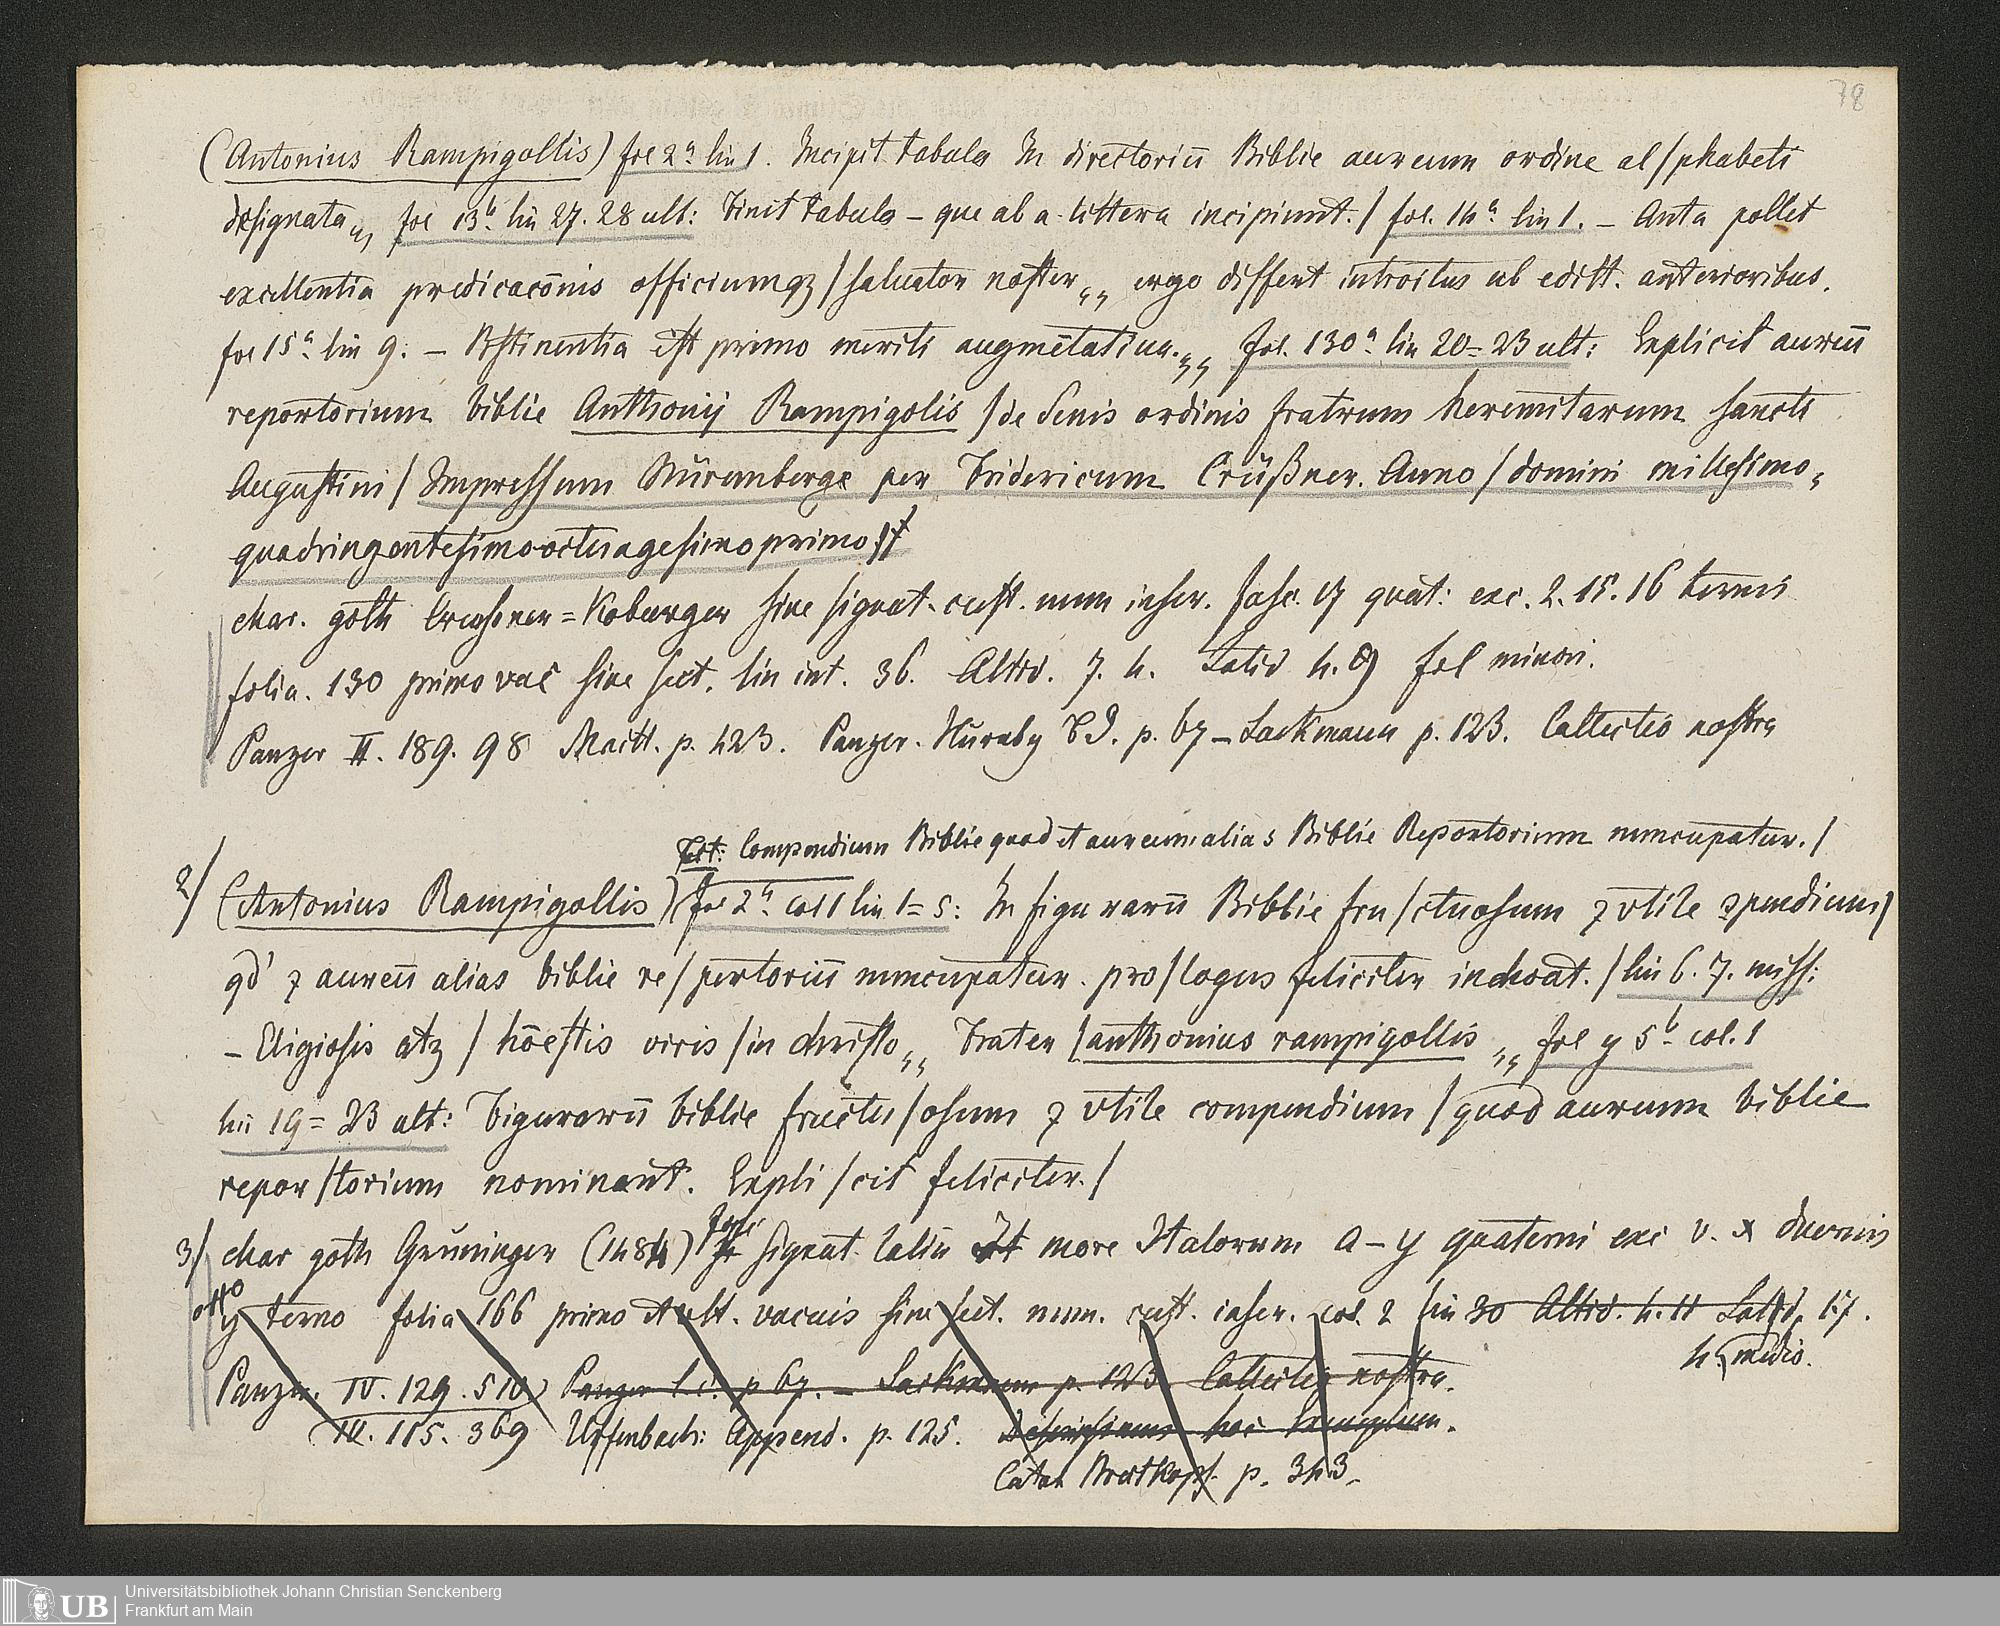 78
(Antonius Rampigollis) fol 2a lin 1. Incipit tabula In directoriū Biblie aureum ordine al/phabeti
designata„ fol 13b. lin 27. 28 ult: Finit tabula – que ab a. littera incipiunt./ fol. 14a lin 1. – Anta pollet
excellentia predicacōnis officiumqz / saluator noster„ ergo differt introitus ab editt. anterioribus.
fol 15a. lin 9. – Abstinentia est primo meriti augmētatiua.„ fol. 130a. lin 20=23 ult: Explicit aureū
reportorium biblie Anthonij Rampigolis / de Senis ordinis fratrum heremitarum sancti
Augustini / Impressum Nüremberge per Fridericum Crüßner. Anno / domini millesimo-
quadringentesimooctuagesimoprimo//
char. goth Creusner=Koburger sine signat. cust. num inscr. fasc. 17 quat: exc. 2. 15. 16 ternis
folia. 130 primo vac sine sect. lin int. 36. Altid. 7. 4. Latid 4. 9 fol minori.
Panzer II. 189. 98 Maitt. p. 423. Panzer. Nurnbg BG. p. 67 – Lackmann p. 123. Collectio nostra
Tit: Compendium Biblie quod et aureum alias Biblie Reportorium nuncupatur./
2/ (Antonius Rampigollis) (fol 2a. col 1 lin 1=5: In figurarū Biblie fru/ctuosum ⁊ vtile ꝯpendium/
qd' ⁊ aureū alias biblie re/pertoriū nuncupatur. pro/logus feliciter inchoat./ lin 6. 7. miss:
– Eligiosis atqz / hōestis viris / in christo„ Frater / anthonius rampigollis „ fol y 5b. col. 1
lin 19=23 ult: Figurarū biblie fructu/osum ⁊ vtile compendium / quod aureum biblie
repor/torium nominant. Expli/cit feliciter./
3/ char goth Grüninger (1484) signat. latin more Italorum a–y quaterni exc v. x duernis
y terno folia 166 primo et ult. vacuis sine sect. num. cust. inscr. col. 2 lin 30 Altid. 4. 11 Latid. 17.
4 medio.
Panzer. IV. 129. 510) Panzer l. c. p 67. – Lackmann p. 123. Collectio nostra.
IV. 115. 369 Uffenbach: Append. p. 125. Descripsimus hoc Exemplum.
Catal Breitkopf. p. 343.
UB
Universitätsbibliothek Johann Christian Senckenberg
Frankfurt am Main